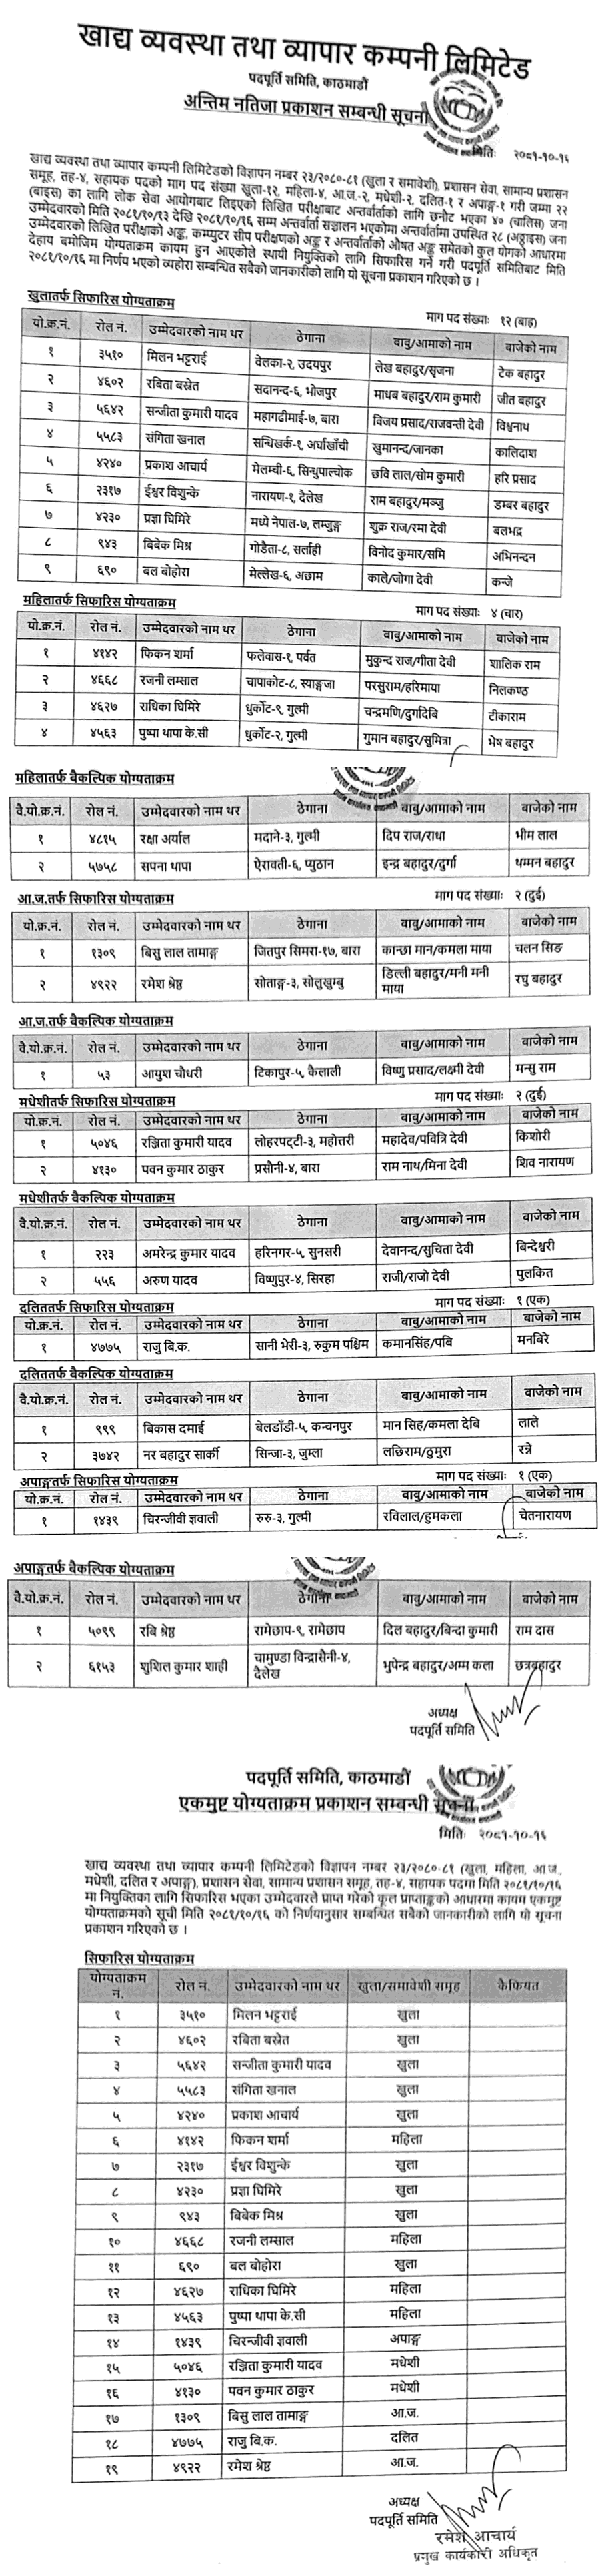 खाद्य व्यवस्था तथा व्यापार कम्पनी लिमिटेड
पदपूर्ति समिति, काठमाडौं
अन्तिम नतिजा प्रकाशन सम्बन्धी सूचना
मितिः २०८१-१०-१६
खाद्य व्यवस्था तथा व्यापार कम्पनी लिमिटेडको विज्ञापन नम्बर २३/२०८०-८१ (खुला र समावेशी), प्रशासन सेवा, सामान्य प्रशासन
समूह, तह-४, सहायक पदको माग पद संख्या खुला-१२, महिला-४, आ.ज.-२, मधेशी-२, दलित-१ र अपाङ्ग-१ गरी जम्मा २२
(बाइस) का लागि लोक सेवा आयोगबाट लिइएको लिखित परीक्षाबाट अन्तर्वार्ताको लागि छनोट भएका ४० (चालिस) जना
उम्मेदवारको मिति २०८१/१०/१३ देखि २०८१/१०/१६ सम्म अन्तर्वार्ता सञ्चालन भएकोमा अन्तर्वार्तामा उपस्थित २८ (अठ्ठाइस) जना
उम्मेदवारको लिखित परीक्षाको अङ्क, कम्प्युटर सीप परीक्षणको अङ्क र अन्तर्वार्ताको औषत अङ्क समेतको कुल योगको आधारमा
देहाय बमोजिम योग्यताक्रम कायम हुन आएकोले स्थायी नियुक्तिको लागि सिफारिस गर्ने गरी पदपूर्ति समितिबाट मिति
२०८१/१०/१६ मा निर्णय भएको व्यहोरा सम्बन्धित सबैको जानकारीको लागि यो सूचना प्रकाशन गरिएको छ ।
खुलातर्फ सिफारिस योग्यताक्रम माग पद संख्याः १२ (बाह्र)
यो.क्र.नं. रोल नं. उम्मेदवारको नाम थर ठेगाना बाबु/आमाको नाम बाजेको नाम
१ ३५१० मिलन भट्टराई वेलका-२, उदयपुर लेख बहादुर/सृजना टेक बहादुर
२ ४६०२ रबिता बस्नेत सदानन्द-६, भोजपुर माधब बहादुर/राम कुमारी जीत बहादुर
३ ५६४२ सन्जीता कुमारी यादव महागढीमाई-७, बारा विजय प्रसाद/राजवन्ती देवी विश्वनाथ
४ ५५८३ संगिता खनाल सन्धिखर्क-१, अर्घाखाँची खुमानन्द/जानका कालिदाश
५ ४२४० प्रकाश आचार्य मेलम्ची-६, सिन्धुपाल्चोक छवि लाल/सोम कुमारी हरि प्रसाद
६ २३१७ ईश्वर विशुन्के नारायण-१, दैलेख राम बहादुर/मञ्जु डम्बर बहादुर
७ ४२३० प्रज्ञा घिमिरे मध्ये नेपाल-७, लम्जुङ्ग शुक्र राज/रमा देवी बलभद्र
८ ९४३ बिबेक मिश्र गोडैता-८, सर्लाही विनोद कुमार/समि अभिनन्दन
९ ६९० बल बोहोरा मेल्लेख-६, अछाम काले/जोगा देवी कन्जे
महिलातर्फ सिफारिस योग्यताक्रम माग पद संख्याः ४ (चार)
यो.क्र.नं. रोल नं. उम्मेदवारको नाम थर ठेगाना बाबु/आमाको नाम बाजेको नाम
१ ४१४२ फिकन शर्मा फलेवास-१, पर्वत मुकुन्द राज/गीता देवी शालिक राम
२ ४६६८ रजनी लम्साल चापाकोट-८, स्याङ्गजा परसुराम/हरिमाया निलकण्ठ
३ ४६२७ राधिका घिमिरे धुर्कोट-९, गुल्मी चन्द्रमणि/दुर्गादेबि टीकाराम
४ ४५६३ पुष्पा थापा के.सी धुर्कोट-२, गुल्मी गुमान बहादुर/सुमित्रा भेष बहादुर
महिलातर्फ बैकल्पिक योग्यताक्रम
वै.यो.क्र.नं. रोल नं. उम्मेदवारको नाम थर ठेगाना बाबु/आमाको नाम बाजेको नाम
१ ४८१५ रक्षा अर्याल मदाने-३, गुल्मी दिप राज/राधा भीम लाल
२ ५७५८ सपना थापा ऐरावती-६, प्युठान इन्द्र बहादुर/दुर्गा थम्मन बहादुर
आ.ज.तर्फ सिफारिस योग्यताक्रम माग पद संख्याः २ (दुई)
यो.क्र.नं. रोल नं. उम्मेदवारको नाम थर ठेगाना बाबु/आमाको नाम बाजेको नाम
१ १३०९ बिसु लाल तामाङ्ग जितपुर सिमरा-१७, बारा कान्छा मान/कमला माया चलन सिङ
२ ४९२२ रमेश श्रेष्ठ सोताङ्ग-३, सोलुखुम्बु डिल्ली बहादुर/मनी मनी माया रघु बहादुर
आ.ज.तर्फ बैकल्पिक योग्यताक्रम
वै.यो.क्र.नं. रोल नं. उम्मेदवारको नाम थर ठेगाना बाबु/आमाको नाम बाजेको नाम
१ ५३ आयुश चौधरी टिकापुर-५, कैलाली विष्णु प्रसाद/लक्ष्मी देवी मन्सु राम
मधेशीतर्फ सिफारिस योग्यताक्रम माग पद संख्याः २ (दुई)
यो.क्र.नं. रोल नं. उम्मेदवारको नाम थर ठेगाना बाबु/आमाको नाम बाजेको नाम
१ ५०४६ रञ्जिता कुमारी यादव लोहरपट्टी-३, महोत्तरी महादेव/पवित्रि देवी किशोरी
२ ४१३० पवन कुमार ठाकुर प्रसौनी-४, बारा राम नाथ/मिना देवी शिव नारायण
मधेशीतर्फ बैकल्पिक योग्यताक्रम
वै.यो.क्र.नं. रोल नं. उम्मेदवारको नाम थर ठेगाना बाबु/आमाको नाम बाजेको नाम
१ २२३ अमरेन्द्र कुमार यादव हरिनगर-५, सुनसरी देवानन्द/सुचिता देवी बिन्देश्वरी
२ ५५६ अरुण यादव विष्णुपुर-४, सिरहा राजी/राजो देवी पुलकित
दलिततर्फ सिफारिस योग्यताक्रम माग पद संख्याः १ (एक)
यो.क्र.नं. रोल नं. उम्मेदवारको नाम थर ठेगाना बाबु/आमाको नाम बाजेको नाम
१ ४७७५ राजु बि.क. सानी भेरी-३, रुकुम पश्चिम कमानसिंह/पबि मनबिरे
दलिततर्फ बैकल्पिक योग्यताक्रम
वै.यो.क्र.नं. रोल नं. उम्मेदवारको नाम थर ठेगाना बाबु/आमाको नाम बाजेको नाम
१ ९९९ बिकास दमाई बेलडाँडी-५, कन्चनपुर मान सिह/कमला देबि लाले
२ ३७४२ नर बहादुर सार्की सिन्जा-३, जुम्ला लछिराम/ठुमुरा रन्ने
अपाङ्गतर्फ सिफारिस योग्यताक्रम माग पद संख्याः १ (एक)
यो.क्र.नं. रोल नं. उम्मेदवारको नाम थर ठेगाना बाबु/आमाको नाम बाजेको नाम
१ १४३९ चिरन्जीवी ज्ञवाली रुरु-३, गुल्मी रविलाल/हुमकला चेतनारायण
अपाङ्गतर्फ बैकल्पिक योग्यताक्रम
वै.यो.क्र.नं. रोल नं. उम्मेदवारको नाम थर ठेगाना बाबु/आमाको नाम बाजेको नाम
१ ५०९९ रबि श्रेष्ठ रामेछाप-९, रामेछाप दिल बहादुर/बिन्दा कुमारी राम दास
२ ६१५३ शुशिल कुमार शाही चामुण्डा विन्द्रासैनी-४, दैलेख भुपेन्द्र बहादुर/अम्म कला छत्रबहादुर
अध्यक्ष
पदपूर्ति समिति
पदपूर्ति समिति, काठमाडौं
एकमुष्ट योग्यताक्रम प्रकाशन सम्बन्धी सूचना
मितिः २०८१-१०-१६
खाद्य व्यवस्था तथा व्यापार कम्पनी लिमिटेडको विज्ञापन नम्बर २३/२०८०-८१ (खुला, महिला, आ.ज.,
मधेशी, दलित र अपाङ्ग), प्रशासन सेवा, सामान्य प्रशासन समूह, तह-४, सहायक पदमा मिति २०८१/१०/१६
मा नियुक्तिका लागि सिफारिस भएका उम्मेदवारले प्राप्त गरेको कूल प्राप्ताङ्कको आधारमा कायम एकमुष्ट
योग्यताक्रमको सूची मिति २०८१/१०/१६ को निर्णयानुसार सम्बन्धित सबैको जानकारीको लागि यो सूचना
प्रकाशन गरिएको छ ।
सिफारिस योग्यताक्रम
योग्यताक्रम नं. रोल नं. उम्मेदवारको नाम थर खुला/समावेशी समूह कैफियत
१ ३५१० मिलन भट्टराई खुला
२ ४६०२ रबिता बस्नेत खुला
३ ५६४२ सन्जीता कुमारी यादव खुला
४ ५५८३ संगिता खनाल खुला
५ ४२४० प्रकाश आचार्य खुला
६ ४१४२ फिकन शर्मा महिला
७ २३१७ ईश्वर विशुन्के खुला
८ ४२३० प्रज्ञा घिमिरे खुला
९ ९४३ बिबेक मिश्र खुला
१० ४६६८ रजनी लम्साल महिला
११ ६९० बल बोहोरा खुला
१२ ४६२७ राधिका घिमिरे महिला
१३ ४५६३ पुष्पा थापा के.सी महिला
१४ १४३९ चिरन्जीवी ज्ञवाली अपाङ्ग
१५ ५०४६ रञ्जिता कुमारी यादव मधेशी
१६ ४१३० पवन कुमार ठाकुर मधेशी
१७ १३०९ बिसु लाल तामाङ्ग आ.ज.
१८ ४७७५ राजु बि.क. दलित
१९ ४९२२ रमेश श्रेष्ठ आ.ज.
अध्यक्ष
पदपूर्ति समिति
रमेश आचार्य
प्रमुख कार्यकारी अधिकृत